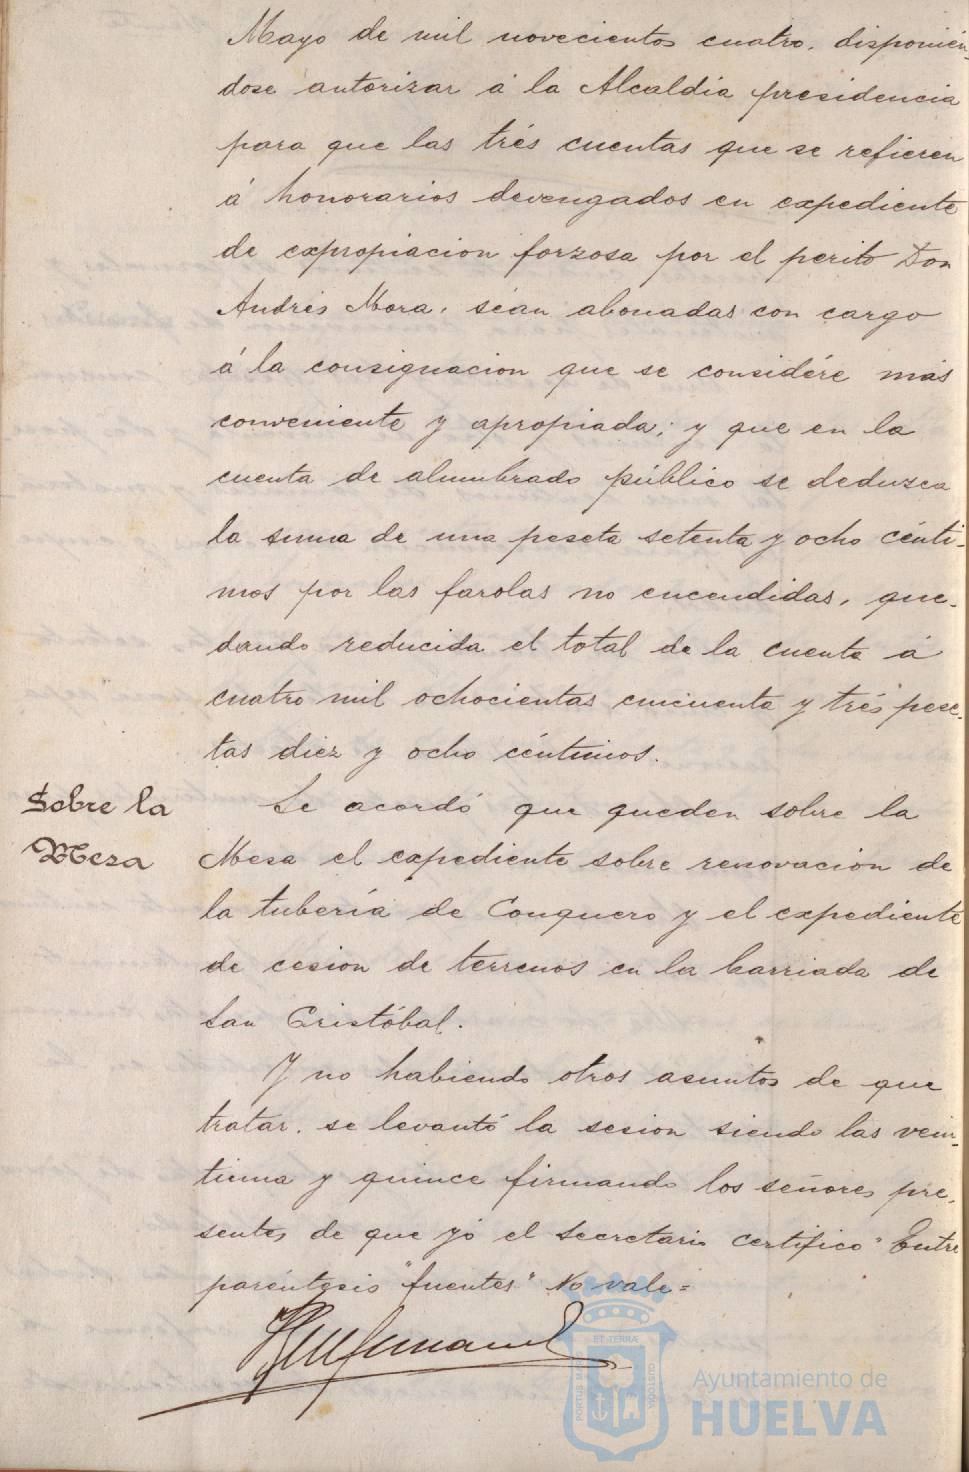 Mayo de mil novecientos cuatro. disponien-
dose autorizar á la Alcaldía presidencia
para que las trés cuentas que se refieren
á honorarios devengados en expediente
de expropiacion forzosa por el perito Don
Andrés Mora, séan abonadas con cargo
á la consignacion que se considére más
conveniente y apropiada; y que en la
cuenta de alumbrado público se deduzca
la suma de una peseta setenta y ocho cénti-
mos por las farolas no encendidas, que-
dando reducida el total de la cuenta á
cuatro mil ochocientas cincuenta y trés pese-
tas diez y ocho céntimos.
Sobre la
Mesa
Se acordó que queden sobre la
Mesa el expediente sobre renovación de
la tubería de Conquero y el expediente
de cesion de terrenos en la barriada de
San Cristóbal.
Y no habiendo otros asuntos de que
tratar. se levantó la sesion siendo las vein-
tiuna y quince firmando los señores pre-
sentes de que yó el Secretario certifico " Entre
paréntesis "fuentes" No vale=
PORTUS MARIS ET TERRÆ CUSTODIA
Ayuntamiento de
HUELVA